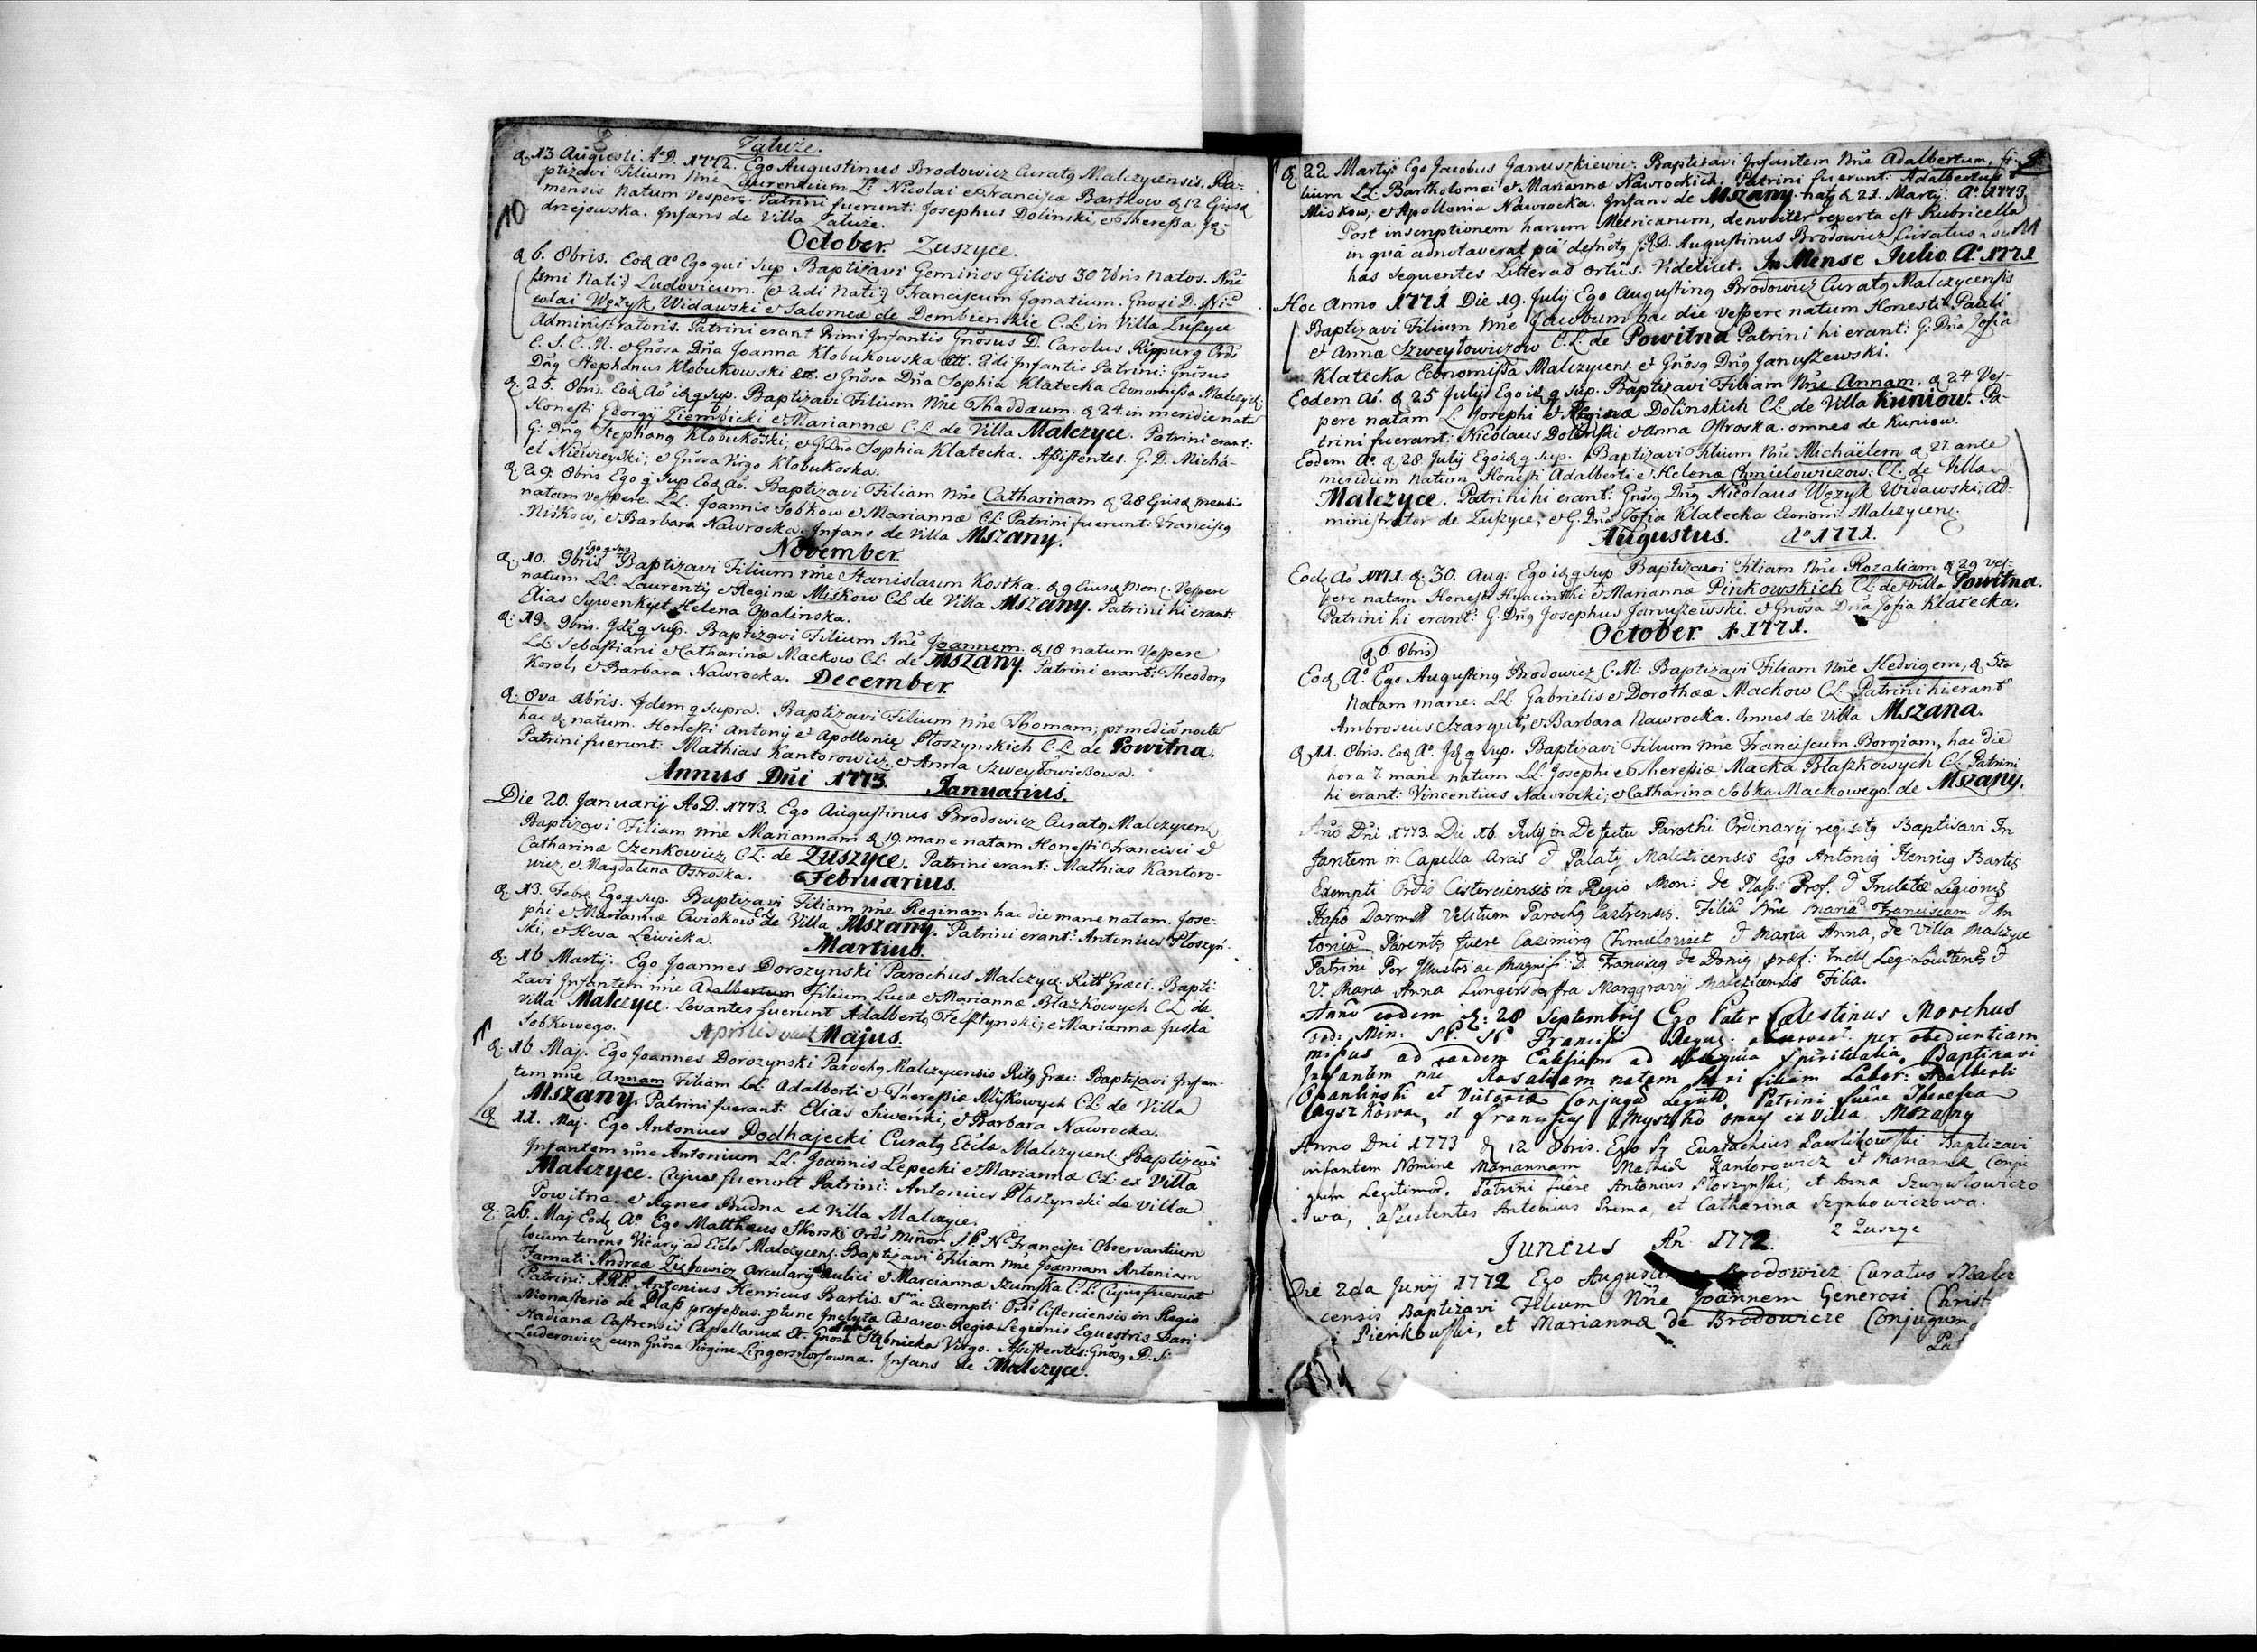 Zatuże.
d. 13 Augusti A°D. 1772. Ego Augustinus Brodowicz Curatq Malczycensis. Ba-
ptizavi Filium Nne Laurentium L: Nicolai et Francisca Bartkow d 12 Ejusd
mensis natum vespere. Patrini fuerunt: Josephus Dolinski, et Theressa Ję-
drzejowska. Infans de Villa Zatuże.
10
October. Zuszyce.
d 6. 8bris. Eod A° Ego qui sup Baptizavi Geminos Filios 30 7bris natos. Nne
Imi Nati:) Ludovicum. et 2di Nati:) Franciscum Ignatium. Gnosi D. Ni-
colai Wężyk Widawski et Salomeæ de Dembienskie C.L. in Villa Zuszyce
Administratoris. Patrini erant Primi Infantis Gnosus D. Carolus Rippurg Ords
E. S. C. N. et Gnosa Dna Joanna Kłobukowska 2di Infantis Patrini: Gnosus
Dnq Stephanus Kłobukowski et Gnosa Dna Sophia Klatecka Economissa Malczyc
d. 25. 8bris. Eod A° id q sup. Baptizavi Filium Nne Thaddæum. d 24. in meridie natu
Honesti Georgy Ziembicki et Mariannæ C.L. de Villa Malczyce. Patrini erant:
G: Dnq Stephanq Kłobukoski, et G Dna Sophia Klatecka. Assistentes. G. D. Michä-
el Niewieyski, et Gnosa Virgo Kłobukoska.
d 29. 8bris Ego q sup Eod A°. Baptizavi Filiam Nne Catharinam d 28 Ejusd mensis
natam vespere. LL. Joannis Sobkow et Mariannæ CL: Patrini fuerunt: Franciscq
Miśkow, et Barbara Nawrocka. Infans de Villa Mszany.
November.
d. 10. 9bris Ego q sup Baptizavi Filium nne Stanislaum Kostka. d 9 Eiusd Mens. Vespere
natum LL. Laurenty et Reginæ Miśkow CL de Villa Mszany. Patrini hi erant:
Elias Sywenkijet Helena Opalinska.
d: 19. 9bris. Idē q sup. Baptizavi Filium Nne Joannem. d 18 natum Vespere
LL Sebastiani et Catharinæ Mackow CL: de Mszany. Patrini erant: Theodorq
Korol, et Barbara Nawrocka. December.
d: 8va Xbris. Idem q supra. Baptizavi Filium nne Thomam; pt mediā nocte
hac d natum. Honesti Antony et Apollonię Płoszynskich C.L. de Powitna.
Patrini fuerunt: Mathias Kantorowicz, et Anna Szweyłowiczowa.
Annus Dni 1773. Januarius.
Die 20. Januarij A°D. 1773. Ego Augustinus Brodowicz Curatq Malczycens
Baptizavi Filiam nne Mariannam d 19 mane natam Honesti Francisci et
Catharinæ Czenkowicz, C.L: de Zuszyce. Patrini erant: Mathias Kantoro-
wicz, et Magdalena Ostroska. Februarius.
d. 13. Febr. Ego q sup. Baptizavi Filiam nne Reginam hac die mane natam. Jose-
phi et Mariannæ Cwiokow CL de Villa Mszany. Patrini erant: Antonius Płoszyń-
ski, et Heva Lewicka. Martius.
d. 16 Martij: Ego Joannes Dorozynski Parochus Malczyc Ritt Græci. Bapti-
zavi Infantem nne Adalbertum Filium Lucæ et Mariannæ Błażkowych CL de
Villa Malczyce. Levantes fuerunt Adalbertq Felsztynski, et Marianna Juska
Sobkowego. Aprilis vacat Majus.
d. 16 Maj. Ego Joannes Dorozynski Parochq Malczycensis Ritq Græc: Baptizavi Infan-
tem nne Annam Filiam LL: Adalberti et Theressiæ Miskowych CL: de Villa
Mszany. Patrini fuerant: Elias Siweński, et Barbara Nawrocka.
d 11. Maj. Ego Antonius Podhajecki Curatq Ecclæ Malczycens. Baptizavi
Infantem nne Antonium LL. Joannis Lepecki et Mariannæ CL: ex Villa
Malczyce. Cujus fuerunt Patrini: Antonius Płoszynski de Villa
Powitna. et Agnes Budna ex Villa Malczyce.
d. 26. Maj Eod A° Ego Matthæus Skorski Ords Minor S. P. N. Francisci Observantium
locum tenens Vicarij ad Ecclā Malczycens. Baptizavi Filiam Nne Joannam Antoniam
Famati Andreæ Ziębowicz Arcularij Aulici et Marciannæ Szumska C.L. Cujus fuerunt
Patrini: A.R.P. Antonius Henricus Bartis. S ac Exempti Ords Cisterciensis in Regio
Monasterio de Plass professus. p tunc Inclyta Cæsareo-Regiæ Legionis Equestris Darm-
stadianæ Castrensis Capellanus et Gnosa Stębnicka Virgo. Assistentes: Gnosq D. S:
Luderowicz cum Gnosa Virgine Lingersztorfowna. Infans de Malczyce.
d 22 Martij: Ego Jacobus Januszkiewicz. Baptizavi Infantem Nne Adalbertum, fi-
lium LL. Bartholomei et Mariannæ Nawrockich. Patrini fuerunt: Adalbertus
Miskow, et Apollonia Nawrocka. Infans de Mszany. natq d 21. Martij. A° 1773.
Post inscriptionem harum Metricarum, denoviter reperta est Rubricella
in quā adnotaverat piē defuctq A.D. Augustinus Brodowicz Curatus
has sequentes Litteras ortus. Videlicet. In Mense Julio A° 1771
Hoc Anno 1771 Die 19. July Ego Augustinq Brodowicz Curatq Malczycensis
Baptizavi Filium Nne Jacobum hac die vespere natum Honesti Pauli
et Annæ Szweyłowiczow C.L. de Powitna Patrini hi erant: G: Dna Zofia
Klatecka Economissa Malczycens. et Gnosq Dnq Januszewski.
Eodem A°. d 25 July Ego id q sup. Baptizavi Filiam Nne Annam. d 24 Ves-
pere natam L. Josephi et Reginæ Dolinskich CL de Villa Kuniow. Pa-
trini fuerant: Nicolaus Dolinski et Anna Ostroska. omnes de Kuniow.
Eodem A°. d 28. July Ego id q sup. Baptizavi Filium Nne Michaëlem d 27. ante
meridiem natum Honesti Adalberti et Helenæ Chmielowiczow: CL: de Villa
Malczyce. Patrini hi erant: Gnosq Dnq Nicolaus Wężyk Widawski, Ad-
ministrator de Zuszyce, et G. Dna Zofia Klatecka Econom: Malczycens.
Augustus. A° 1771.
Eod A° 1771. d. 30. Aug: Ego id q sup Baptizavi Filiam Nne Rozaliam d 29 ves-
pere natam Honesti Hyacinthi et Mariannæ Pinkowskich CL de Villa Powitna.
Patrini hi erant: G: Dnq Josephus Januszewski. et Gnosa Dna Zofia Klatecka.
October A° 1771.
d 6. 8bris
Eod A°. Ego Augustinq Brodowicz C.M. Baptizavi Filiam Nne Hedvigem, d 5ta
Natam mane. LL. Gabrielis et Dorotheæ Mackow CL: Patrini hi erant
Ambrosius Szargut, et Barbara Nawrocka. Omnes de Villa Mszana.
d 11. 8bris. Eod A°. Id q sup. Baptizavi Filium Nne Franciscum Borgiam, hac die
hora 7 mane natum LL. Josephi et Theressiæ Macka Błaszkowych CL Patrini
hi erant: Vincentius Nawrocki, et Catharina Sobka Mackowego. de Mszany.
Ano Dni 1773. Die 16. July in Defectu Parochi Ordinarij Baptisavi In
fantem in Capella Arcis et Palatij Malczicensis Ego Antoniq Henricq Bartis
Exempti Ordis Cisterciensis in Regio Mon: de Plass: Prof. et Incletæ Legionis
Darmst Velitum Parochq Castrensis. Filiā Nne Mariā Franciscam et An
toniā Parentes fuere Casimirq Chmielowicz et Maria Anna, de Villa Malczyce
Patrini Per Illustris ac Magnifi: D. Franciscq de Donig præf: Incl: Leg: et
V. Maria Anna Margravij Malczicensis Filia.
Anno eodem d: 28 Septembris Ego Pater Cælestinus Morchus
Ord: Min: SP. N Francisci Regul. observant. per obedientiam
missus ad eandem Ecclesiam ad obsequia spiritualia Baptizavi
Infantem nne Rosaliam natam heri filiam Labor: Adalberti
Opanlinski et Victoriæ Conjugū legitt. Patrini fuêre Theressa
et Franciscq Myszko omnes ex Villa Mszany
Anno Dni 1773 d 12 8bris. Ego Eustachius Pawlikowski Baptizavi
infantem Nomine Mariannam Mathiæ Kantorowicz et Mariannæ Conju
gum Legitimor. Patrini fuêre Antonius Płoszynski, et Anna Szwejłowiczo
wa, Assistentes Antonius Prima, et Catharina Szynkowiczowa.
z Zuszyc
Junius An 1772.
Die 2da Junij 1772 Ego Augustinus Brodowicz Curatus Malcz
censis Baptizavi Filium Nne Joannem Generosi Christ
Pieńkowski, et Mariannæ de Brodowicze Conjugum
Pa